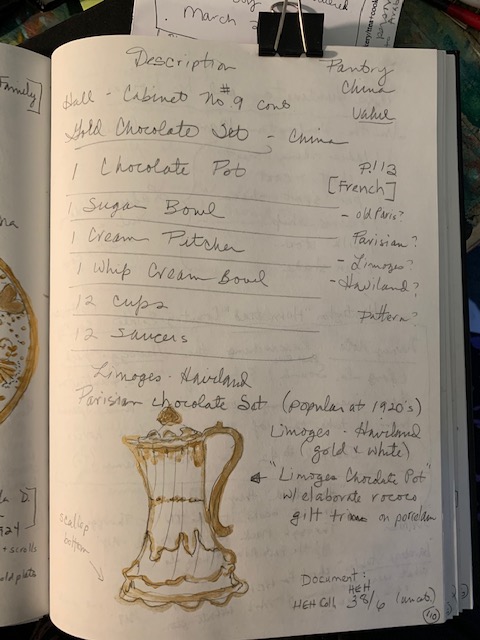 March 2
Family]
Description
Pantry
China
Value
Hall - Cabinet No #9 cont
Gold Chocolate Set - China
1 Chocolate Pot
P. 112
[French]
1 Sugar Bowl
- old Paris?
1 Cream Pitcher
Parisian?
- Limoges?
1 Whip Cream Bowl
- Haviland?
12 cups
Pattern?
12 saucers
Limoges - Haviland
Parisian chocolate Set (popular at 1920's)
Limoges - Haviland
(gold & white)
"Limoges Chocolate Pot"
w/ elaborate rococo
gilt trim on porcelain
scallop
bottom
Document:
HEH
HEH Coll. 38/6
110
D.
1924
+ scrolls
gold plate